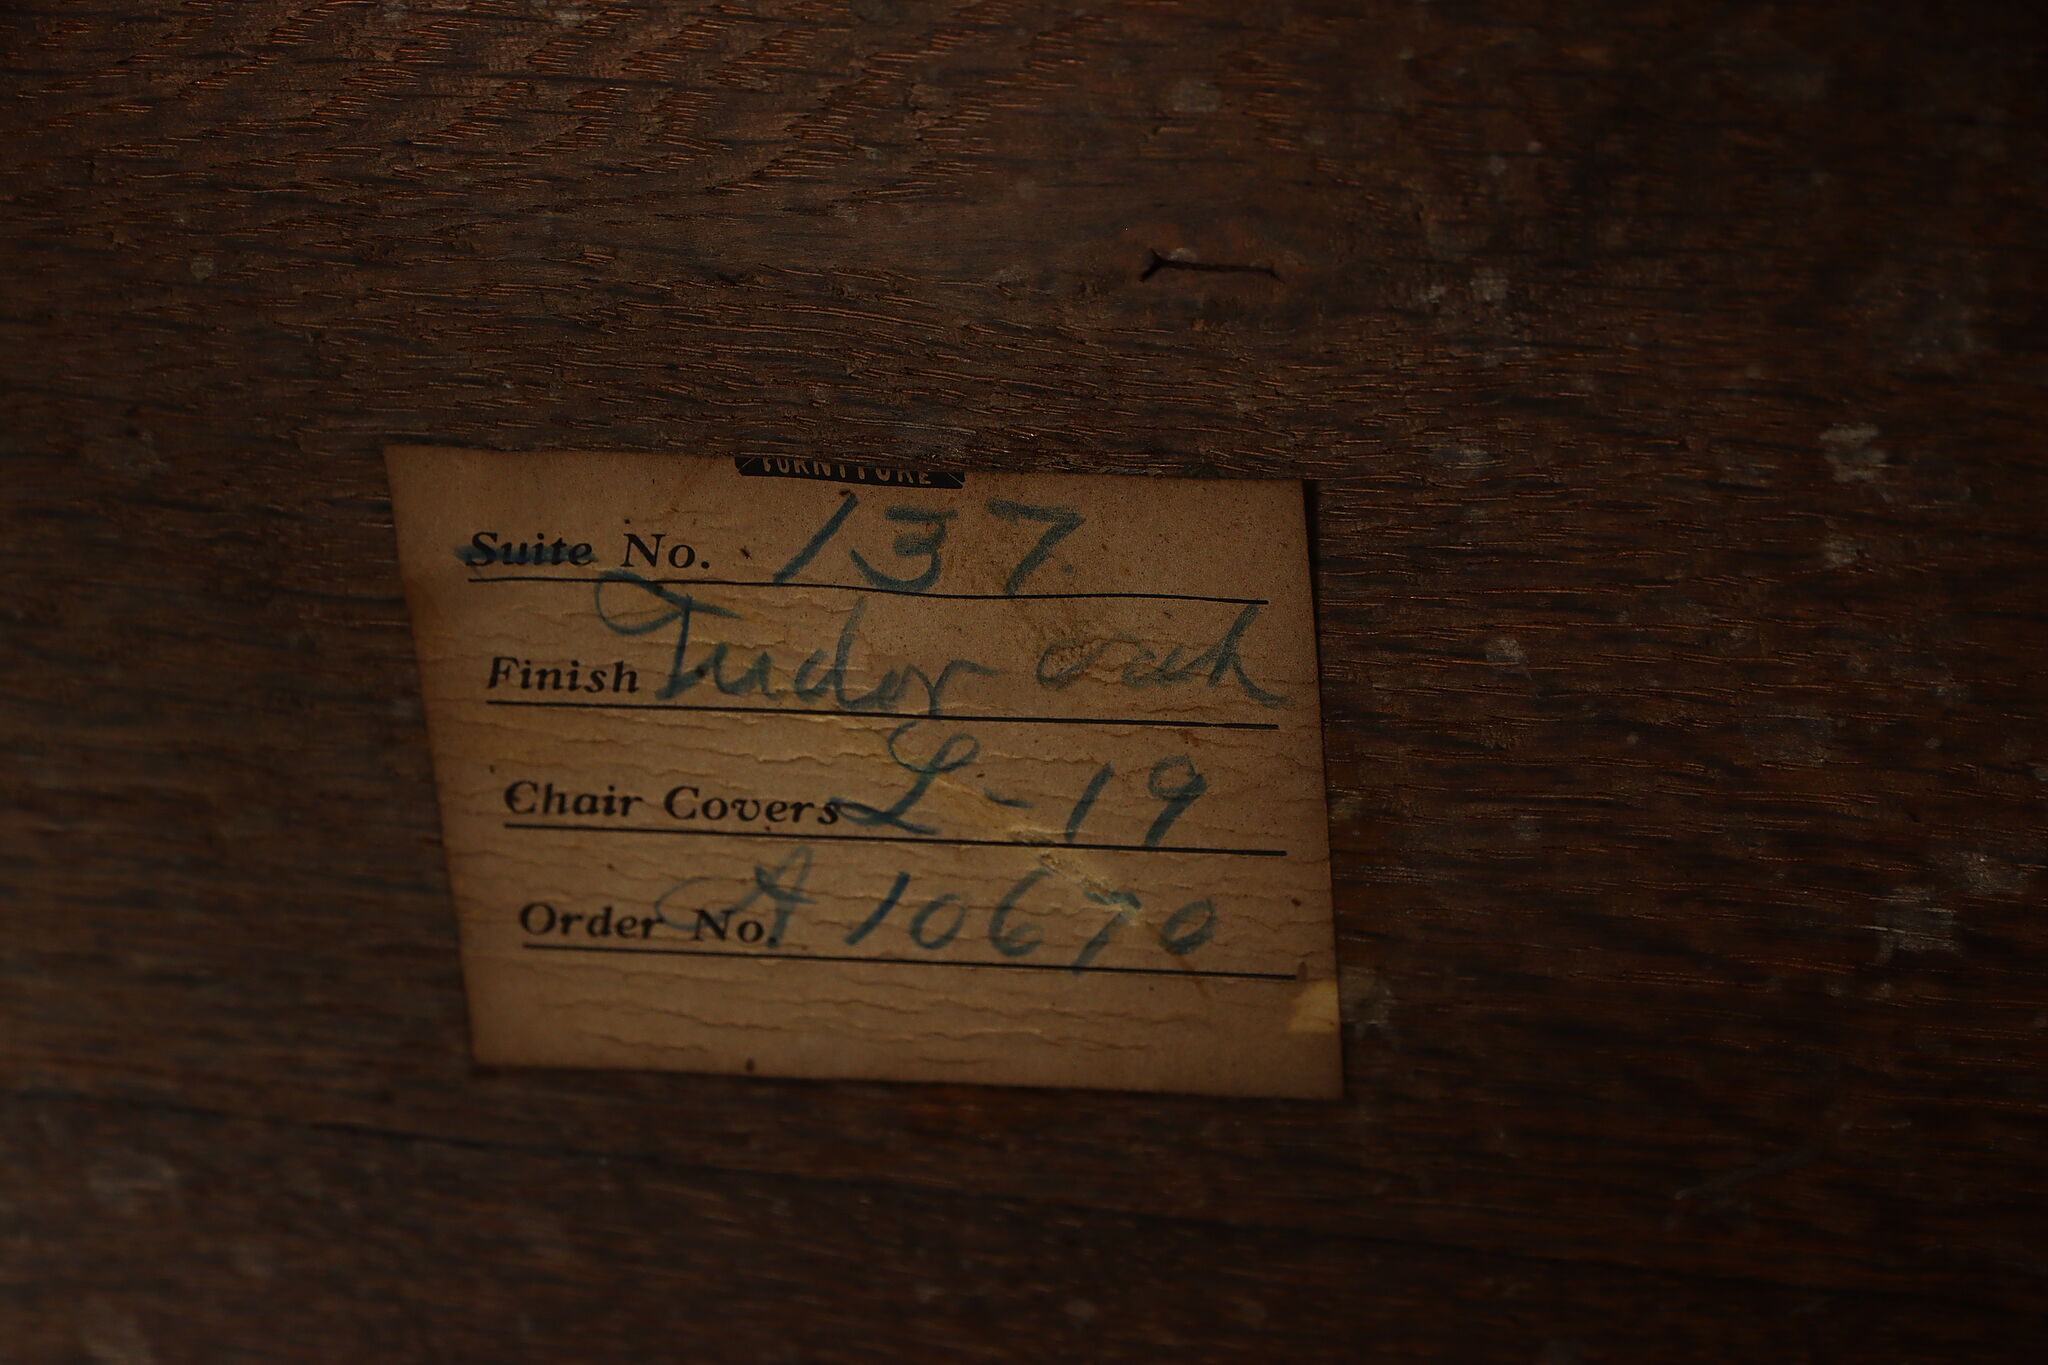 FURNITURE
Suite No. 137
Finish Tudor oak
Chair Covers L-19
Order No. A 10670